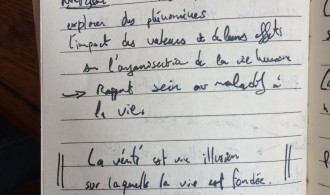 explorer des phénomènes
l'impact des valeurs & de leurs effets
sur l'organisation de la vie humaine
→ Rapport sain ou maladif à
la vie.
La vérité est une illusion
sur laquelle la vie est fondée.